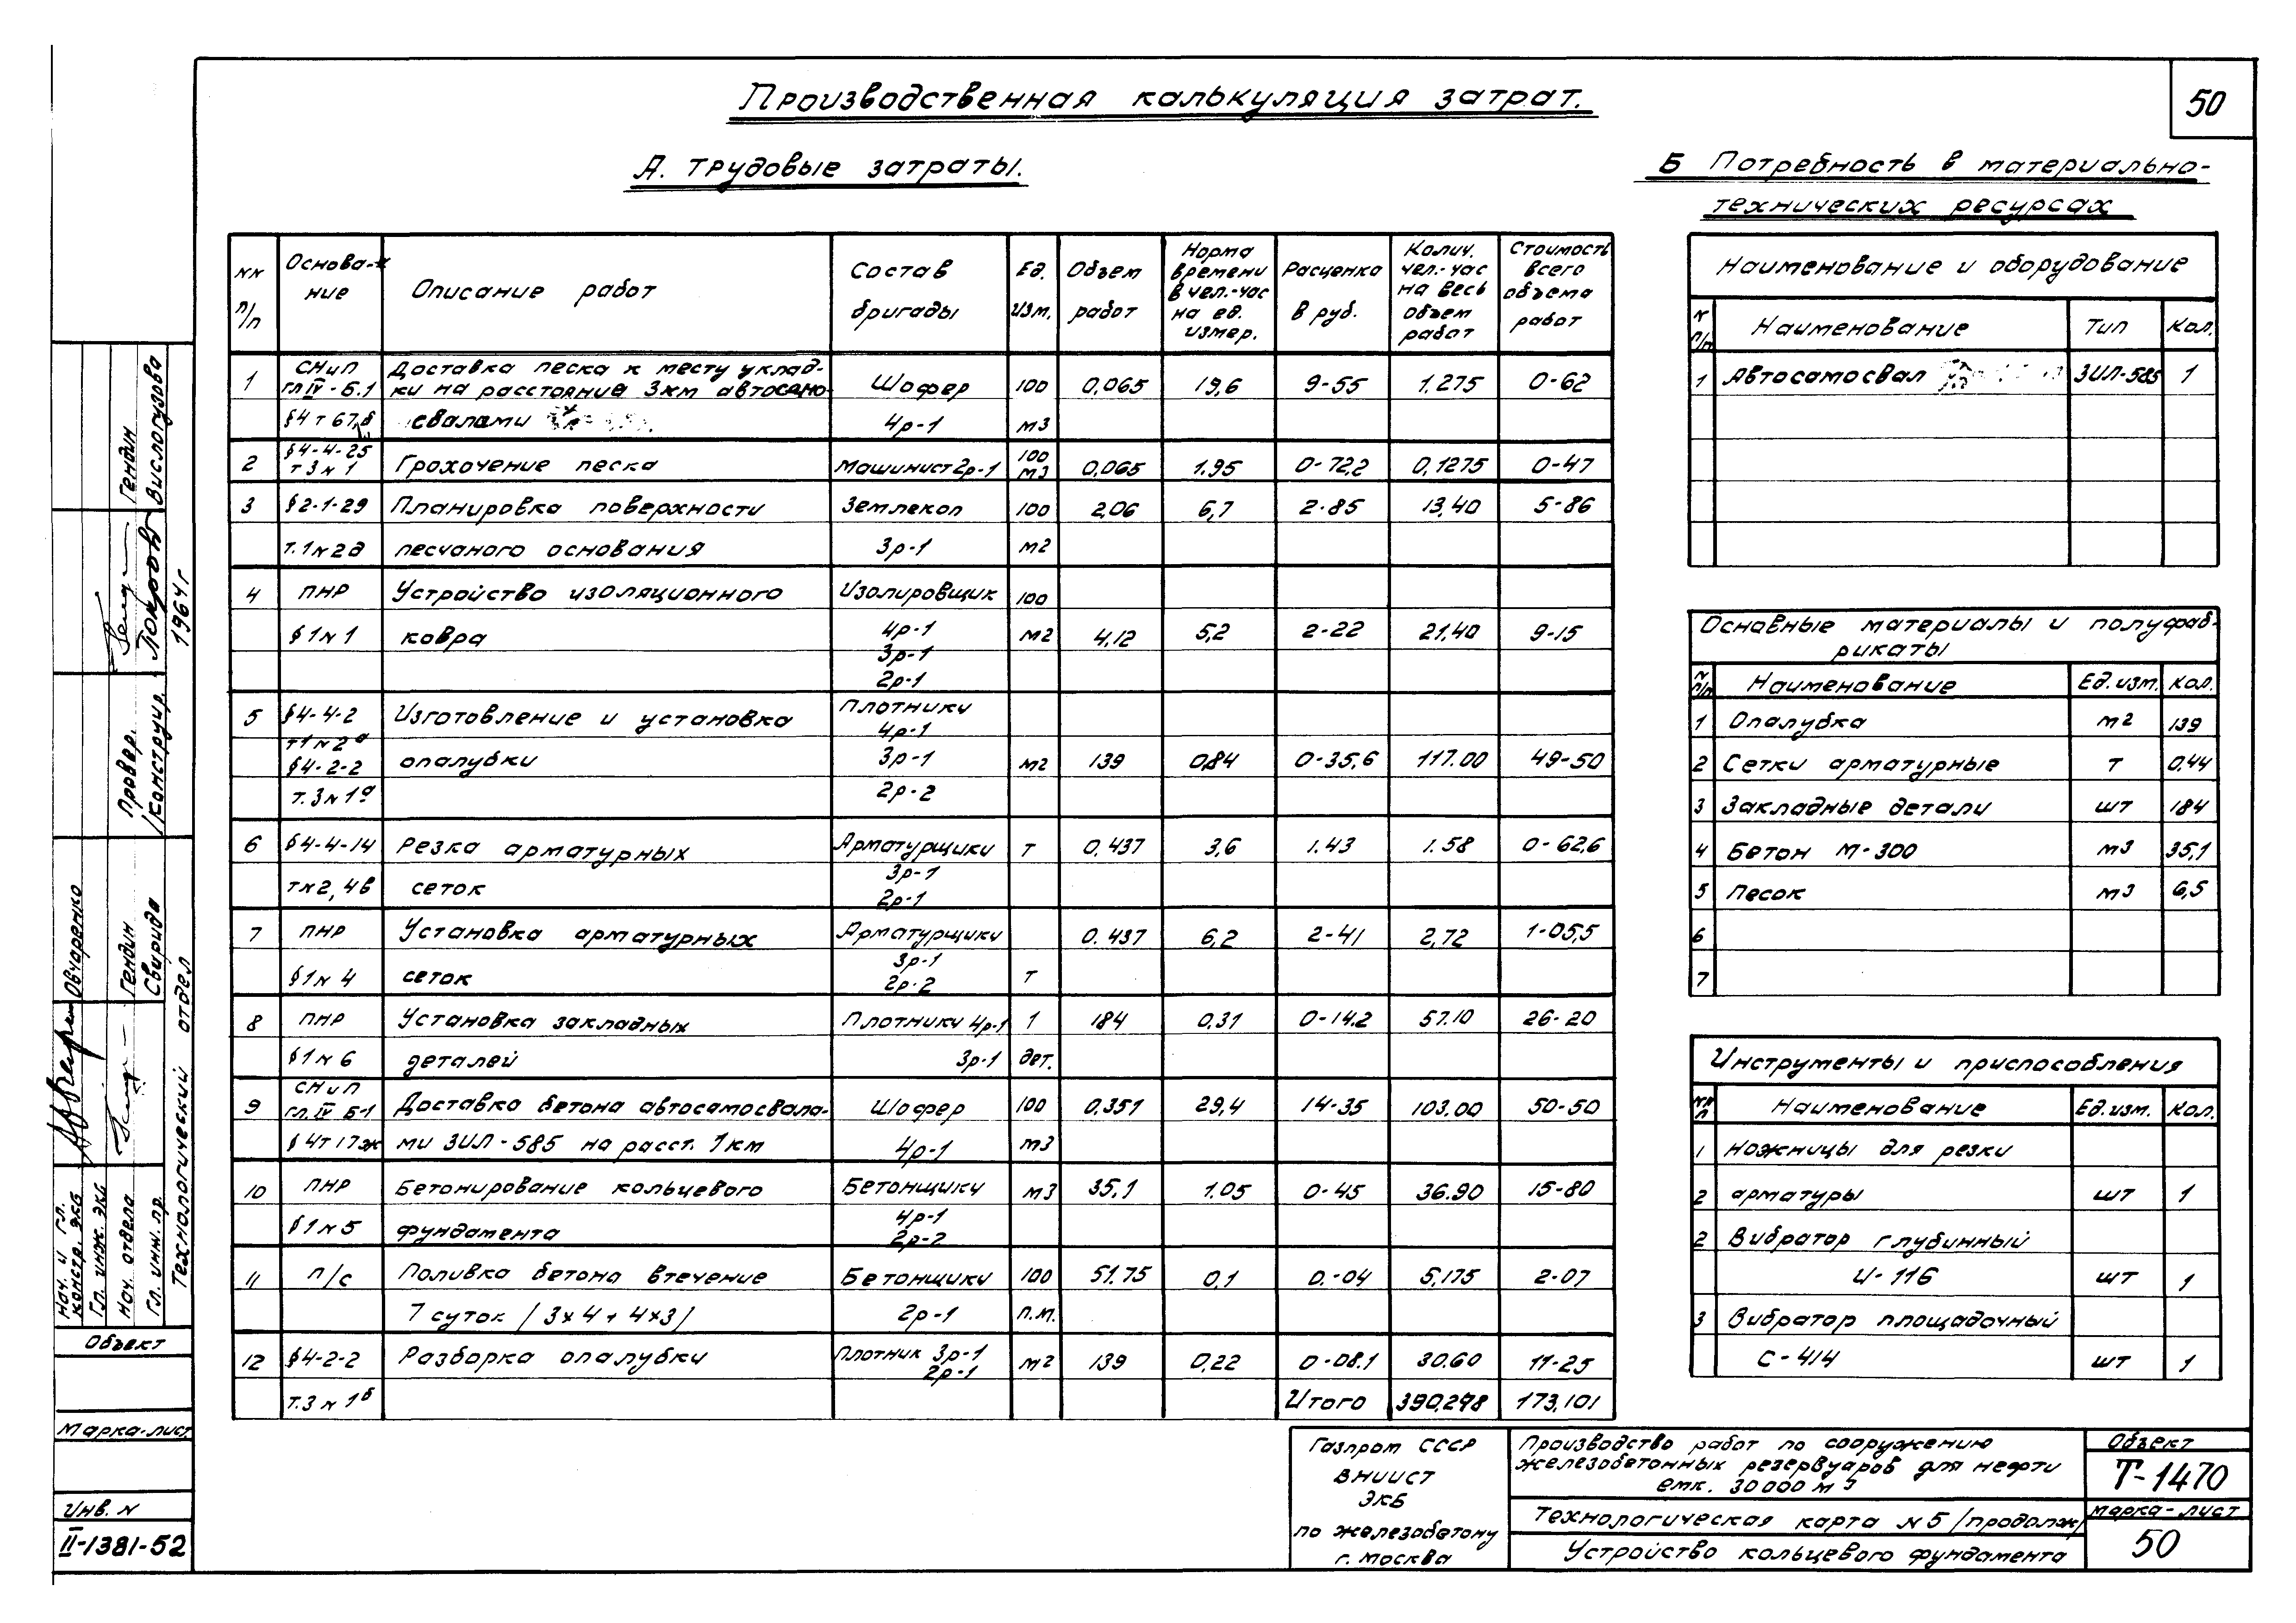 50
Производственная калькуляция затрат.
А. Трудовые затраты.
NN п/п | Основание | Описание работ | Состав бригады | Ед. изм. | Объем работ | Норма времени в чел.-час на ед. измер. | Расценка в руб. | Колич. чел.-час на весь объем работ | Стоимость всего объема работ
1 | СНиП гл IV - Б.1 | Доставка песка к месту уклад- | Шофер | 100 | 0,065 | 19,6 | 9-55 | 1.275 | 0-62
ки на расстояние 3км автосамо-
§4 т 67, | свалами | 4р-1 | м3
2 | §4-4-25 т 3 N 1 | Грохочение песка | Машинист 2р-1 | 100 м3 | 0,065 | 1.95 | 0-72,2 | 0,1275 | 0-47
3 | §2-1-29 | Планировка поверхности | Землекоп | 100 | 2,06 | 6,7 | 2-85 | 13,40 | 5-86
т.1 N 2д | песчаного основания | 3р-1 | м2
4 | ПНР | Устройство изоляционного | Изолировщик | 100
§1 N 1 | ковра | 4р-1 | м2 | 4,12 | 5,2 | 2-22 | 21,40 | 9-15
3р-1
2р-1
5 | §4-4-2 | Изготовление и установка | Плотники
т1 N 2а | 4р-1
§4-2-2 | опалубки | 3р-1 | м2 | 139 | 0,84 | 0-35,6 | 117.00 | 49-50
т.3 N 1а | 2р-2
6 | §4-4-14 | Резка арматурных | Арматурщики | т | 0,437 | 3,6 | 1.43 | 1.58 | 0-62,6
т N 2, 4в | сеток | 3р-1
2р-1
7 | ПНР | Установка арматурных | Арматурщики | 0.437 | 6,2 | 2-41 | 2,72 | 1-05,5
§1 N 4 | сеток | 3р-1 2р-2 | т
8 | ПНР | Установка закладных | Плотники 4р-1 | 1 | 184 | 0,31 | 0-14.2 | 57.10 | 26-20
§1 N 6 | деталей | 3р-1 | дет.
9 | СНиП гл. IV Б-1 | Доставка бетона автосамосвала- | Шофер | 100 | 0,351 | 29,4 | 14-35 | 103.00 | 50-50
§ 4т 17ж | ми ЗИЛ-585 на расст. 1км | 4р-1 | м3
10 | ПНР | Бетонирование кольцевого | Бетонщики | м3 | 35,1 | 1.05 | 0-45 | 36.90 | 15-80
§1 N 5 | фундамента | 4р-1 2р-2
11 | п/с | Поливка бетона втечение | Бетонщики | 100 | 51.75 | 0,1 | 0.-04 | 5,175 | 2-07
7 суток /3×4+4×3/ | 2р-1 | п.м.
12 | §4-2-2 | Разборка опалубки | Плотник 3р-1 2р-1 | м2 | 139 | 0,22 | 0-08.1 | 30.60 | 11-25
т.3 N 1б | Итого | 390,278 | 173,101
Б Потребность в материально-
технических ресурсах
Наименование и оборудование
N п/п | Наименование | Тип | Кол.
1 | Автосамосвал | ЗИЛ-585 | 1
Основные материалы и полуфаб-
рикаты
N п/п | Наименование | Ед. изм. | Кол.
1 | Опалубка | м2 | 139
2 | Сетки арматурные | т | 0,44
3 | Закладные детали | шт | 184
4 | Бетон М-300 | м3 | 35,1
5 | Песок | м3 | 6,5
6
7
Инструменты и приспособления
NN п | Наименование | Ед. изм. | Кол.
1 | Ножницы для резки
2 | арматуры | шт | 1
2 | Вибратор глубинный
И-116 | шт | 1
3 | Вибратор площадочный
С-414 | шт | 1
Газпром СССР
ВНИИСТ
ЭКБ
по железобетону
г. Москва
Производство работ по сооружению
железобетонных резервуаров для нефти
емк. 30000 м3
Технологическая карта N 5 /продолж/
Устройство кольцевого фундамента
Объект
Т-1470
марка-лист
50
Нач. и гл. констр. ЭКБ
Овчаренко
Гл. инж. ЭКБ
Нач. отдела
Гендин
Гл. инж. пр.
Свирида
Технологический отдел
Провер.
Гендин
Конструир.
Вислогузова
1964г
Объект
Марка-лист
Инв. N
II-1381-52